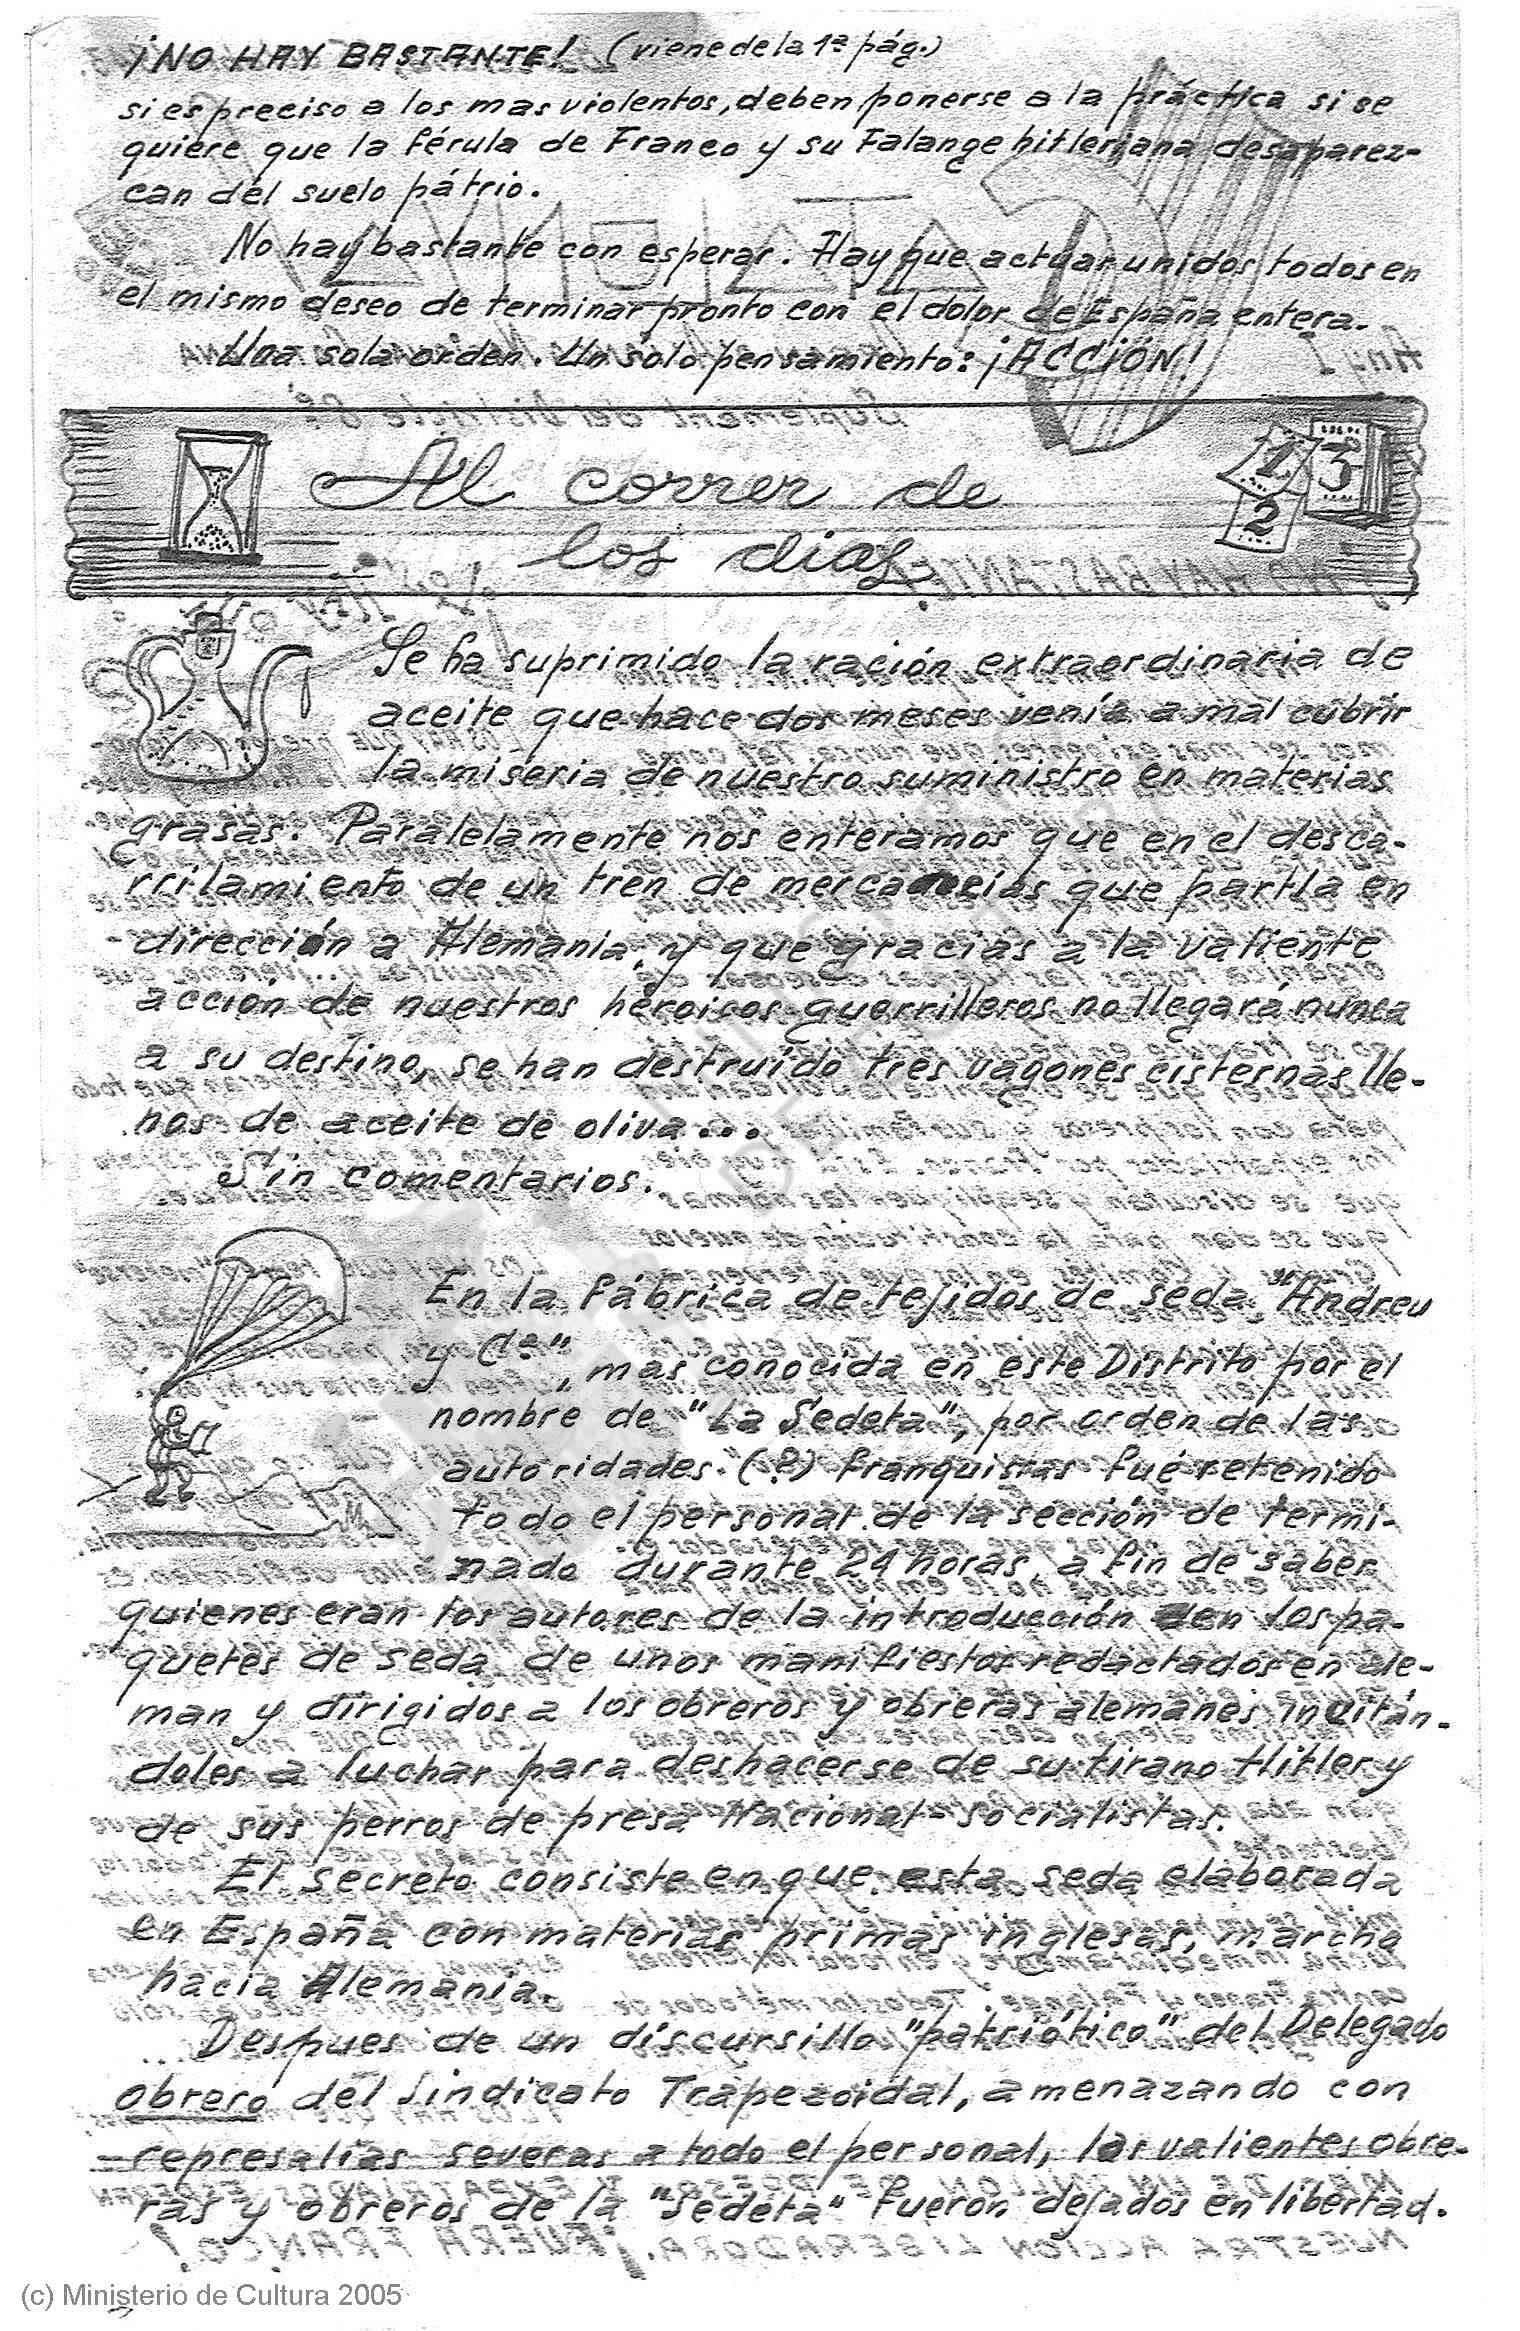 ¡NO HAY BASTANTE! (viene de la 1ª pág.)
si es preciso a los mas violentos, deben ponerse a la práctica si se
quiere que la férula de Franco y su Falange hitleriana desaparez-
can del suelo pátrio.
No hay bastante con esperar. Hay que actuar unidos todos en
el mismo deseo de terminar pronto con el dolor de España entera.
Una sola orden. Un solo pensamiento: ¡ACCIÓN!
Al correr de
los dias
1 2 3
Se ha suprimido la ración extraordinaria de
aceite que hace dos meses venía a mal cubrir
la miseria de nuestro suministro en materias
grasas. Paralelamente nos enteramos que en el desca-
rrilamiento de un tren de mercancias que partía en
dirección a Alemania, y que gracias a la valiente
acción de nuestros héroicos guerrilleros no llegará nunca
a su destino, se han destruído tres vagones cisternas lle-
nos de aceite de oliva...
Sin comentarios.
En la fábrica de tejidos de seda "Andreu
y Cª", mas conocida en este Distrito por el
nombre de "La Sedeta", por orden de las
autoridades (?) franquistas fué retenido
todo el personal de la sección de termi-
nado durante 24 horas, a fin de saber
quienes eran los autores de la introducción en los pa-
quetes de seda de unos manifiestos redactados en ale-
man y dirigidos a los obreros y obreras alemanes invitán-
doles a luchar para deshacerse de su tirano Hitler y
de sus perros de presa Nacional-socialistas.
El secreto consiste en que esta seda elaborada
en España con materias primas inglesas, marcha
hacia Alemania.
Despues de un discursillo "patriótico" del Delegado
obrero del Sindicato Trapezoidal, amenazando con
represalias severas a todo el personal, las valientes obre-
ras y obreros de la "Sedeta" fueron dejados en libertad.
(c) Ministerio de Cultura 2005